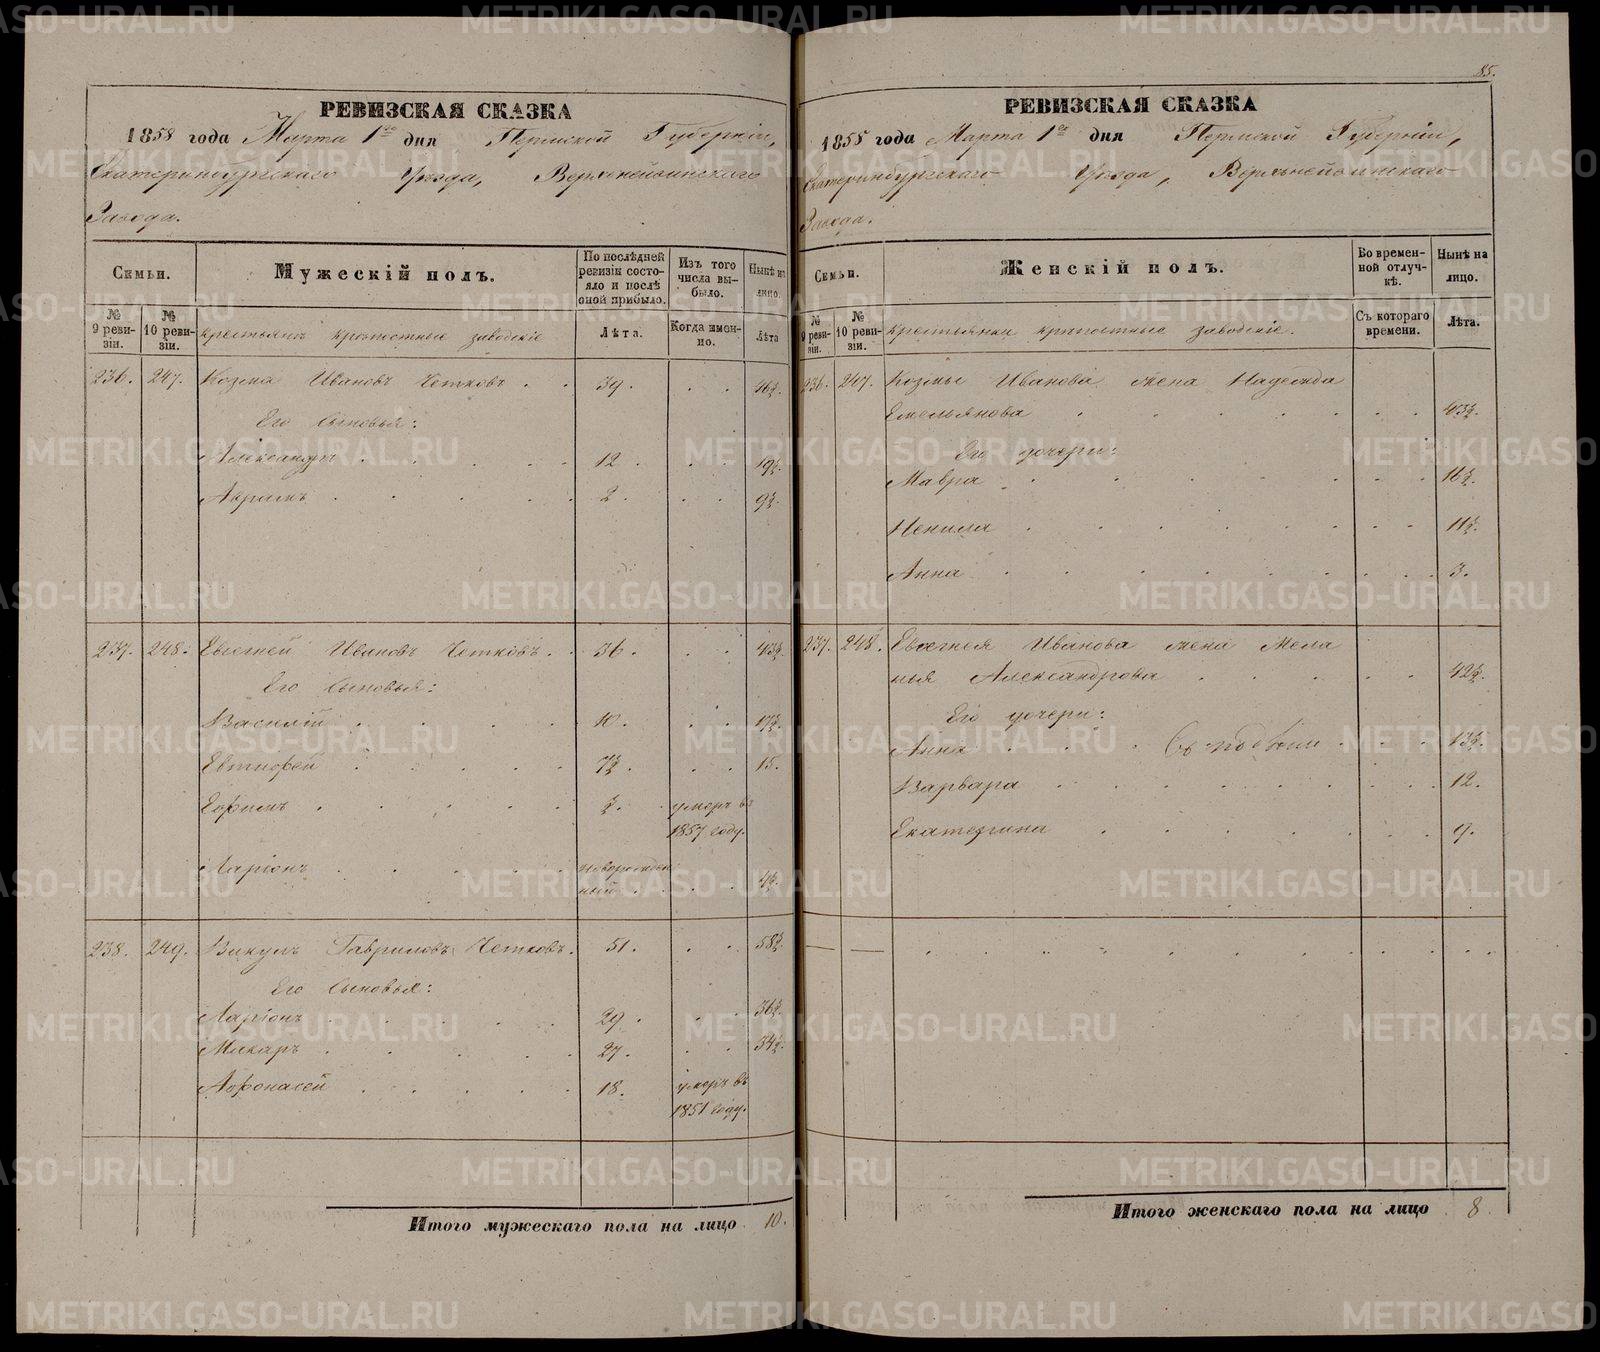 РЕВИЗСКАЯ СКАЗКА
1858 года Марта 1го дня Пермской Губерніи,
Екатеринбургскаго Уезда, Верхнейвинскаго
Завода.
Семьи.
Мужескій полъ.
По послѣдней ревизіи состояло и послѣ оной прибыло.
Изъ того числа выбыло.
Нынѣ на лицо.
№ 9 ревизіи.
№ 10 ревизіи.
крестьянъ крепостные заводскіе
Лѣта.
Когда именно.
Лѣта
236. 247. Козма Ивановъ Четковъ 39. 46½.
Его Сыновья:
Александръ 12. 19½.
Авраамъ 2. 9½.
237. 248. Евгеней Ивановъ Четковъ. 36. 43½.
Его Сыновья:
Василій 10. 17½.
Евтифей 7½. 15.
Ефимъ ½. умеръ въ
1857 году.
Ларіонъ новорожден
ный 4½.
238. 249. Викулъ Гавриловъ Четковъ. 51. 58½.
Его Сыновья:
Ларіонъ 29. 36½.
Макаръ 27. 34½.
Афонасей 18. умеръ въ
1851 году.
Итого мужескаго пола на лицо 10.
85.
РЕВИЗСКАЯ СКАЗКА
1858 года Марта 1го дня Пермской Губерніи,
Екатеринбургскаго Уезда, Верхнейвинскаго
Завода.
Семьи.
Женскій полъ.
Во временной отлучкѣ.
Нынѣ на лицо.
№ 9 ревизіи.
№ 10 ревизіи.
крестьянки крепостные заводскіе.
Съ котораго времени.
Лѣта.
236. 247. Козмы Иванова жена Надежда
Емельянова 43½.
Его дочери:
Мавра 16½.
Ненила 11½.
Анна 3.
237. 248. Евгенея Иванова жена Мела
нья Александрова 42½.
Его дочери:
Анна 13½.
Варвара 12.
Екатерина 9.
Итого женскаго пола на лицо 8.
METRIKI.GASO-URAL.RU